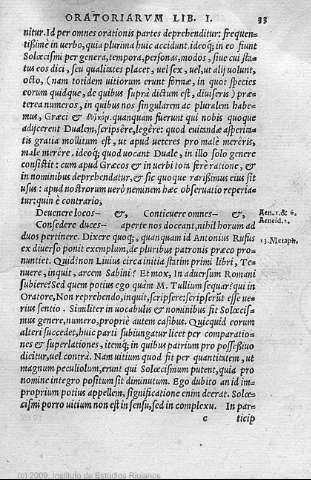 ORATORIARVM LIB. I. 33
nitur. Id per omnes orationis partes deprehenditur: frequen-
tissimè in uerbo, quia plurima huic accidunt. ideoq; in eo fiunt
Solœcismi per genera, tempora, personas, modos, siue cui sta-
tus eos dici, seu qualitates placet, uel sex, uel, ut alij uolunt,
octo, (nam totidem uitiorum erunt formæ, in quot species
eorum quidque, de quibus suprà dictum est, diuiseris) præ-
terea numeros, in quibus nos singularem ac pluralem habe-
mus, Græci & δυϊκόν. quanquam fuerunt qui nobis quoque
adijcerent Dualem, scripsêre, legêre: quod euitandæ asperita-
tis gratia mollitum est, ut apud ueteres pro malè mereris,
malè merêre. ideoq; quod uocant Duale, in illo solo genere
consistit: cum apud Græcos & in uerbi tota ferè ratione, &
in nominibus deprehendatur, & sic quoque rarißimus eius sit
usus: apud nostrorum uerò neminem hæc obseruatio reperia-
tur: quin è contrario,
Deuenere locos— &, Conticuere omnes— &, Aen. 1. & 6.
Aeneid. 2.
Consedere duces— apertè nos doceant, nihil horum ad
duos pertinere. Dixere quoq;, quanquam id Antonius Rufus 13. Metaph.
ex diuerso ponit exemplum, de pluribus patronis præco pro-
nuntiet. Quid? non Liuius circa initia statim primi libri, Te-
nuere, inquit, arcem Sabini? Et mox, In aduersum Romani
subiere? Sed quem potius ego quàm M. Tullium sequar? qui in
Oratore, Non reprehendo, inquit, scripsere: scripserut esse ue-
rius sentio. Similiter in uocabulis & nominibus fit Solœcis-
mus genere, numero, propriè autem casibus. Quicquid eorum
alteri succedet, huic parti subiungatur licet per comparatio-
nes & superlationes, itemq; in quibus patrium pro possessiuo
dicitur, uel contrà. Nam uitium quod fit per quantitatem, ut
magnum peculiolum, erunt qui Solœcismum putent, quia pro
nomine integro positum sit diminutum. Ego dubito an id im-
proprium potius appellem, significatione enim deerrat. Solœ-
cismi porro uitium non est in sensu, sed in complexu. In par-
c ticip
(c) 2009, Instituto de Estudios Riojanos